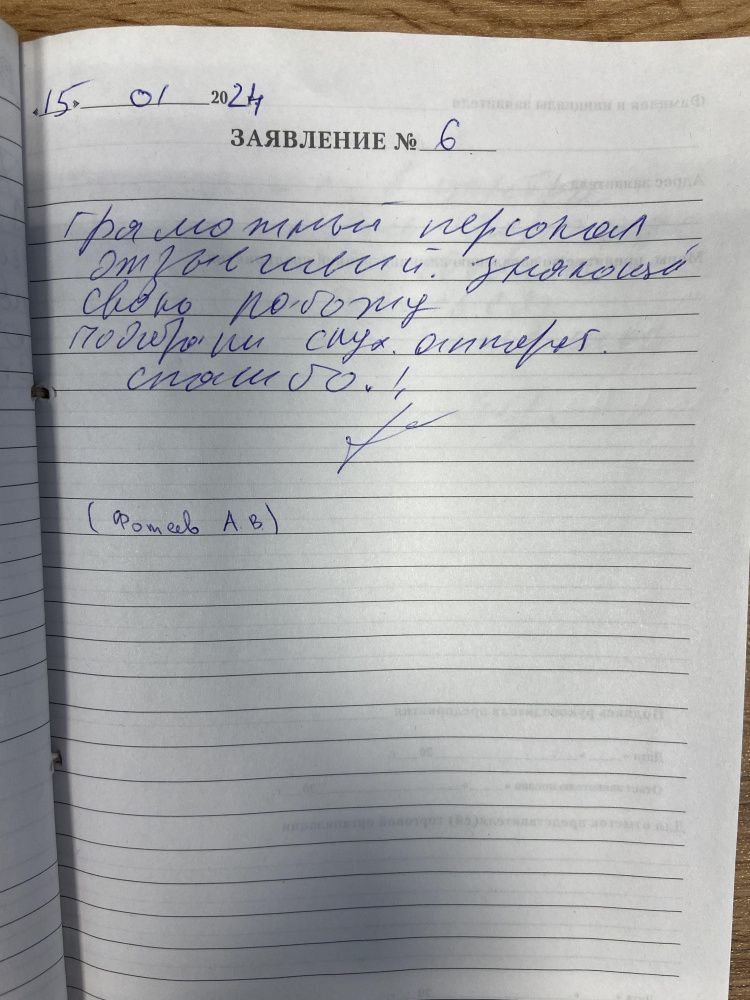 «15» 01 2024
ЗАЯВЛЕНИЕ № 6
Грамотный персонал
отзывчивый. знающий
свою работу
подобрали слух. аппарат.
спасибо.!
(Фотеев А.В.)